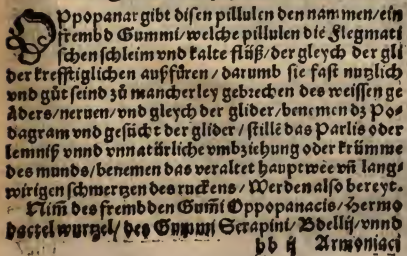 OPpopanax gibt disen pillulen den nammen/ein
frembd Gummi/welche pillulen die Flegmati
schen schleim vnd kalte flüß/der gleych der gli
der krefftiglichen außfüren/darumb sie fast nutzlich
vnd güt seind zů mancherley gebrechen des weissen ge
Aders/neruen/vnd gleych der glider/benemen dz Po-
dagram vnd gesücht der glider/stille das Parlis oder
lemniß vnnd vnnatürliche vmbziehung oder krümme
des munds/benemen das veraltet hauptwee vñ lang-
wirigen schmertzen des ruckens/Werden also bereyt.
Nim̃ des frembden Gum̃i Oppopanacis/Hermo
dactel wurtzel/des Gummi Serapini/Bdellij/vnnd
bb ij Armoniaci